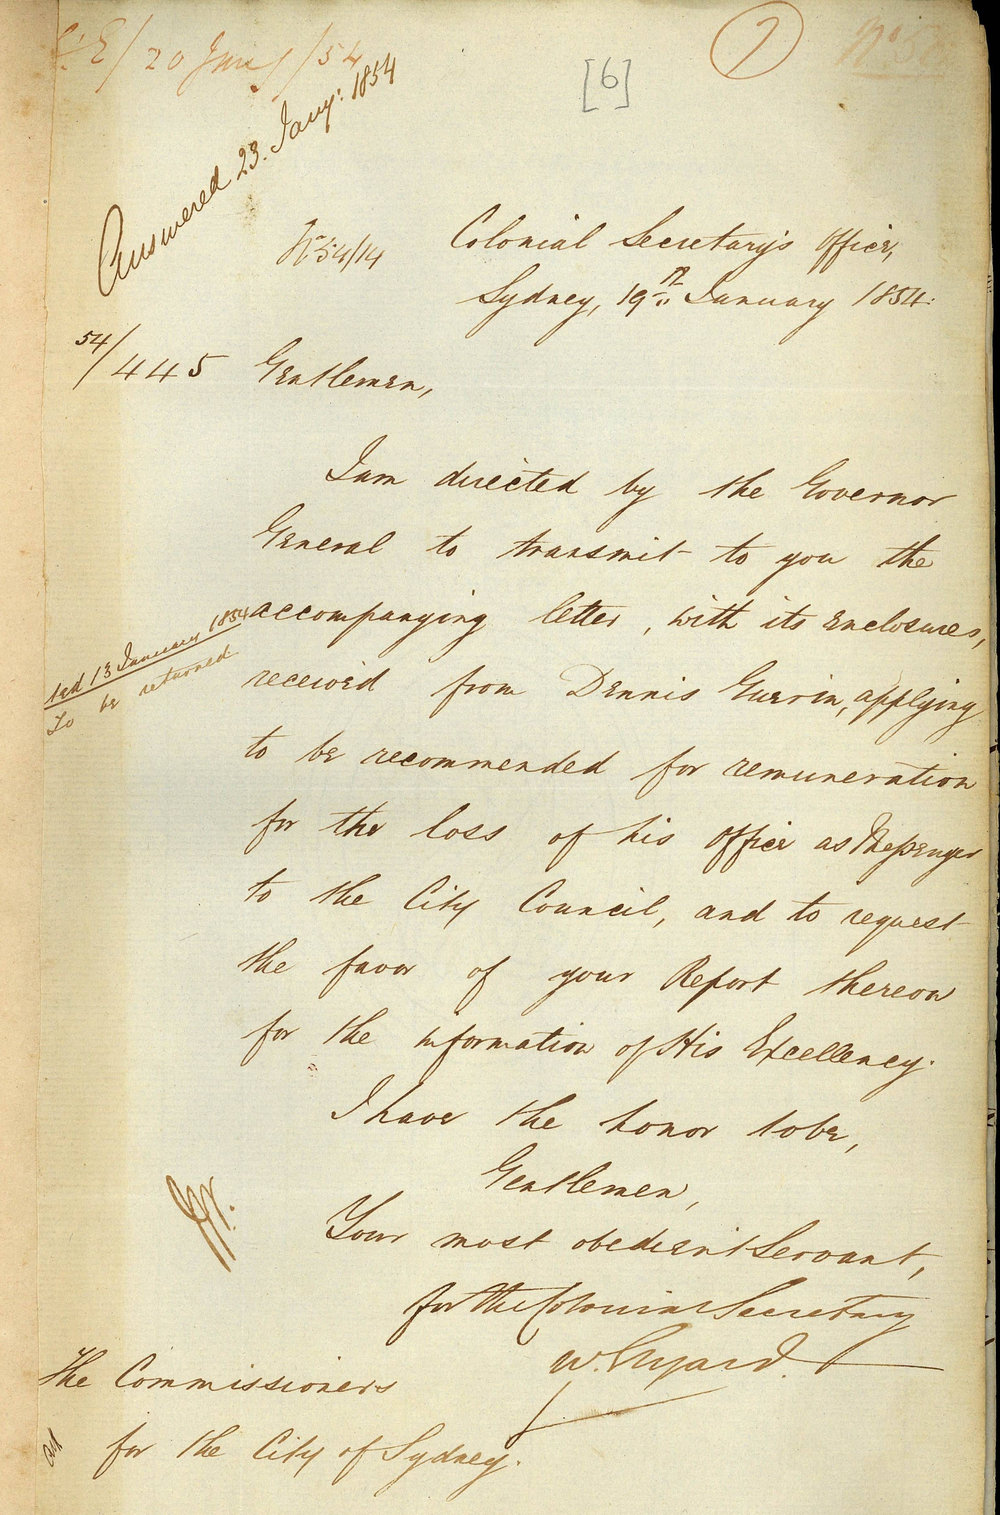 20 Jany/54
7
[6]
Answered 23. Jany: 1854
No 54/14
Colonial Secretary's Office,
Sydney, 19th January 1854.
54/445
Gentlemen,
I am directed by the Governor
General to transmit to you the
accompanying letter, with its enclosures,
received from Dennis Guerin, applying
to be recommended for remuneration
for the loss of his Office as Messenger
to the City Council, and to request
the favor of your Report thereon
for the information of His Excellency.
13 January 1854
To be returned
I have the honor to be,
Gentlemen,
Your most obedient Servant,
for the Colonial Secretary
W. Elyard.
The Commissioners
for the City of Sydney.